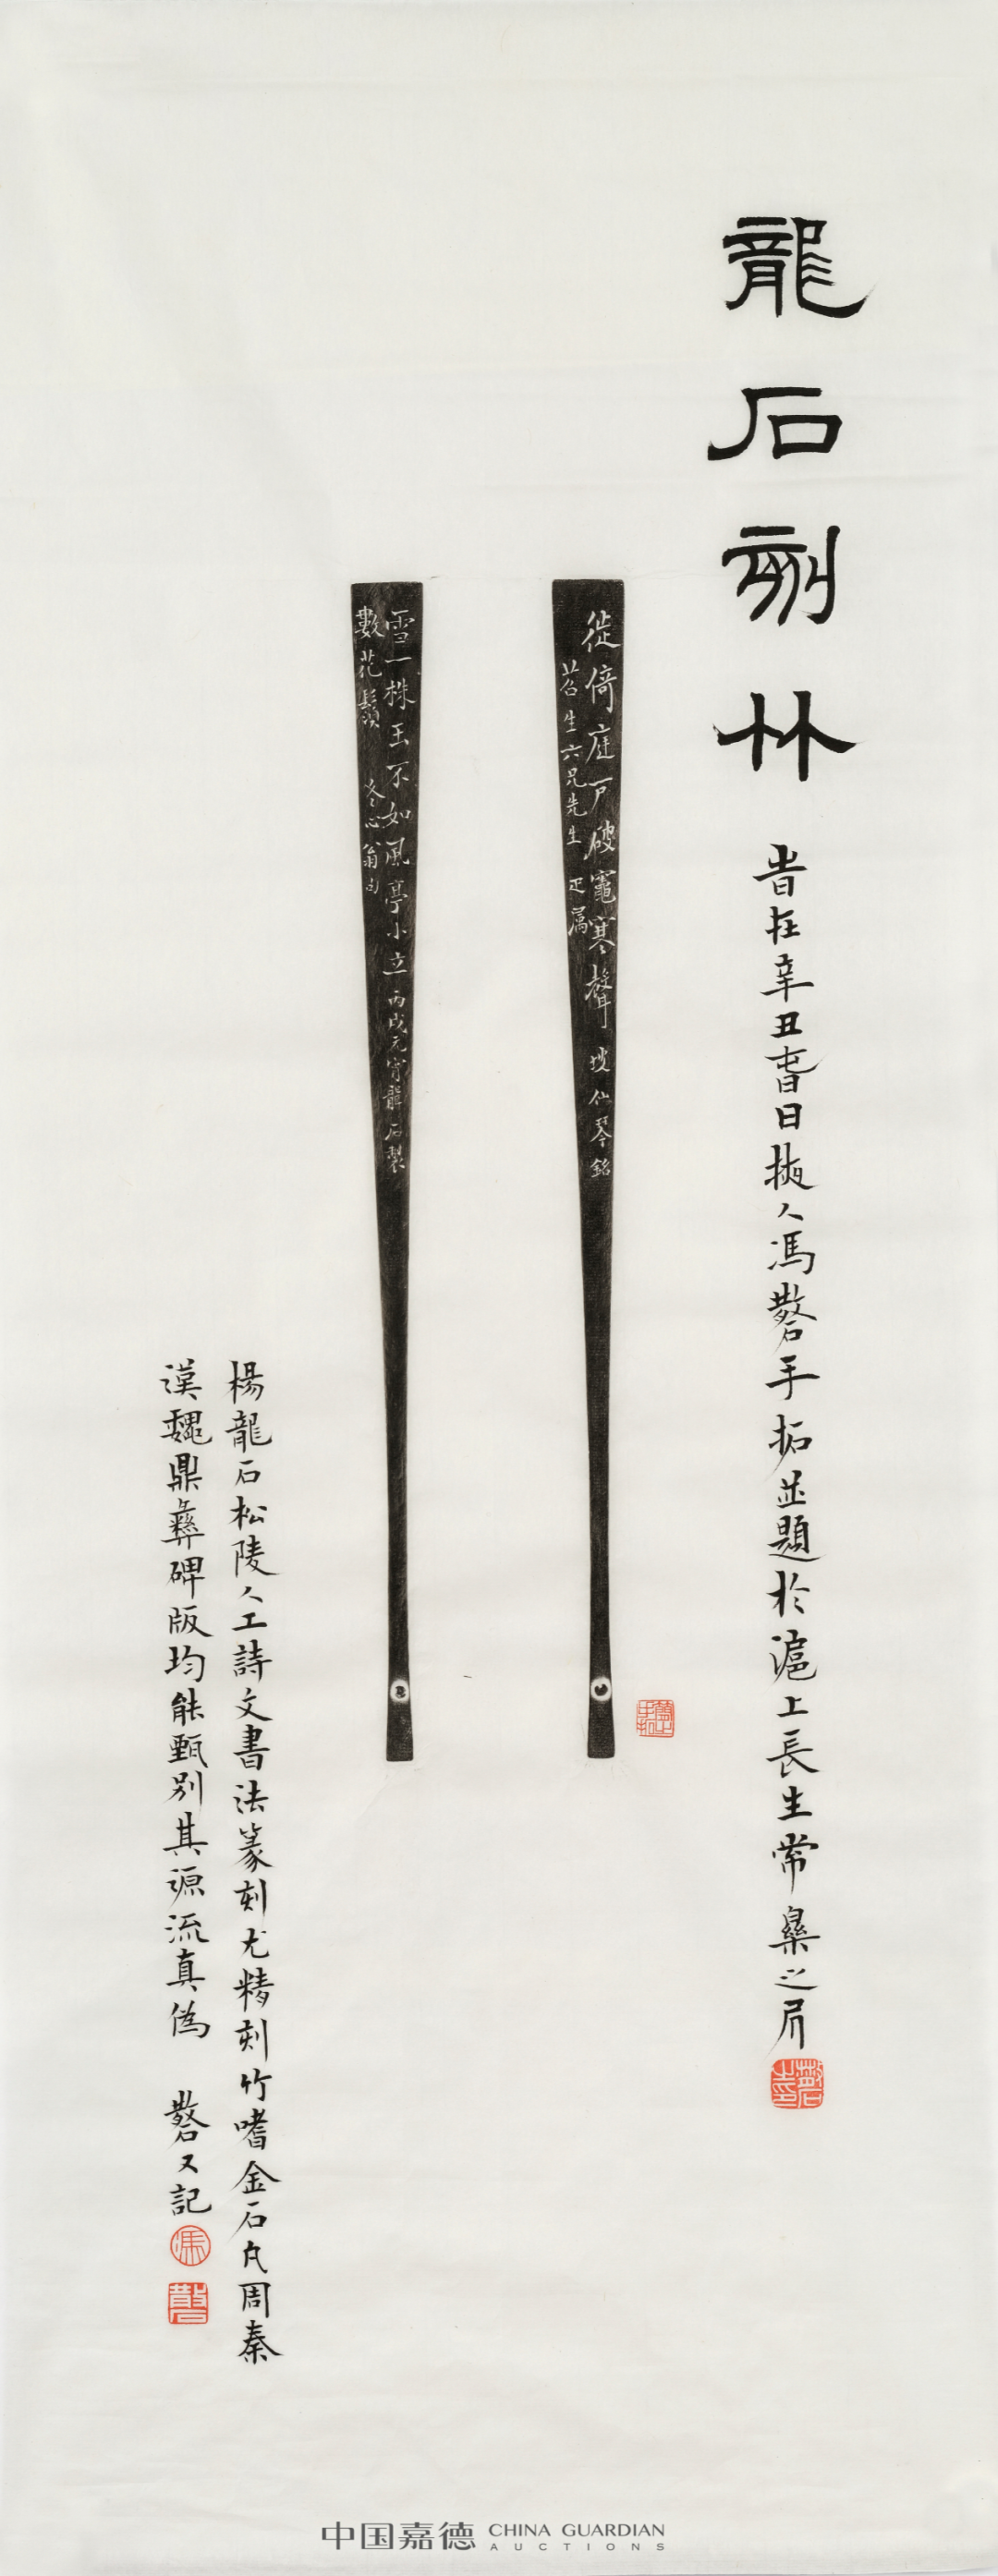 龍石刻竹
旹在辛丑春日掖人馮磬手拓並題於滬上長生常樂之居
徙倚庭戶破竈寒聲 坡仙琴銘
苕生六兄先生正屬
雪一株玉不如風亭小立 丙戌元宵龍石製
數花鬚 冬心翁句
楊龍石松陵人工詩文書法篆刻尤精刻竹嗜金石凡周秦
漢魏鼎彝碑版均能甄別其源流真偽 磬又記
中国嘉德 CHINA GUARDIAN
AUCTIONS